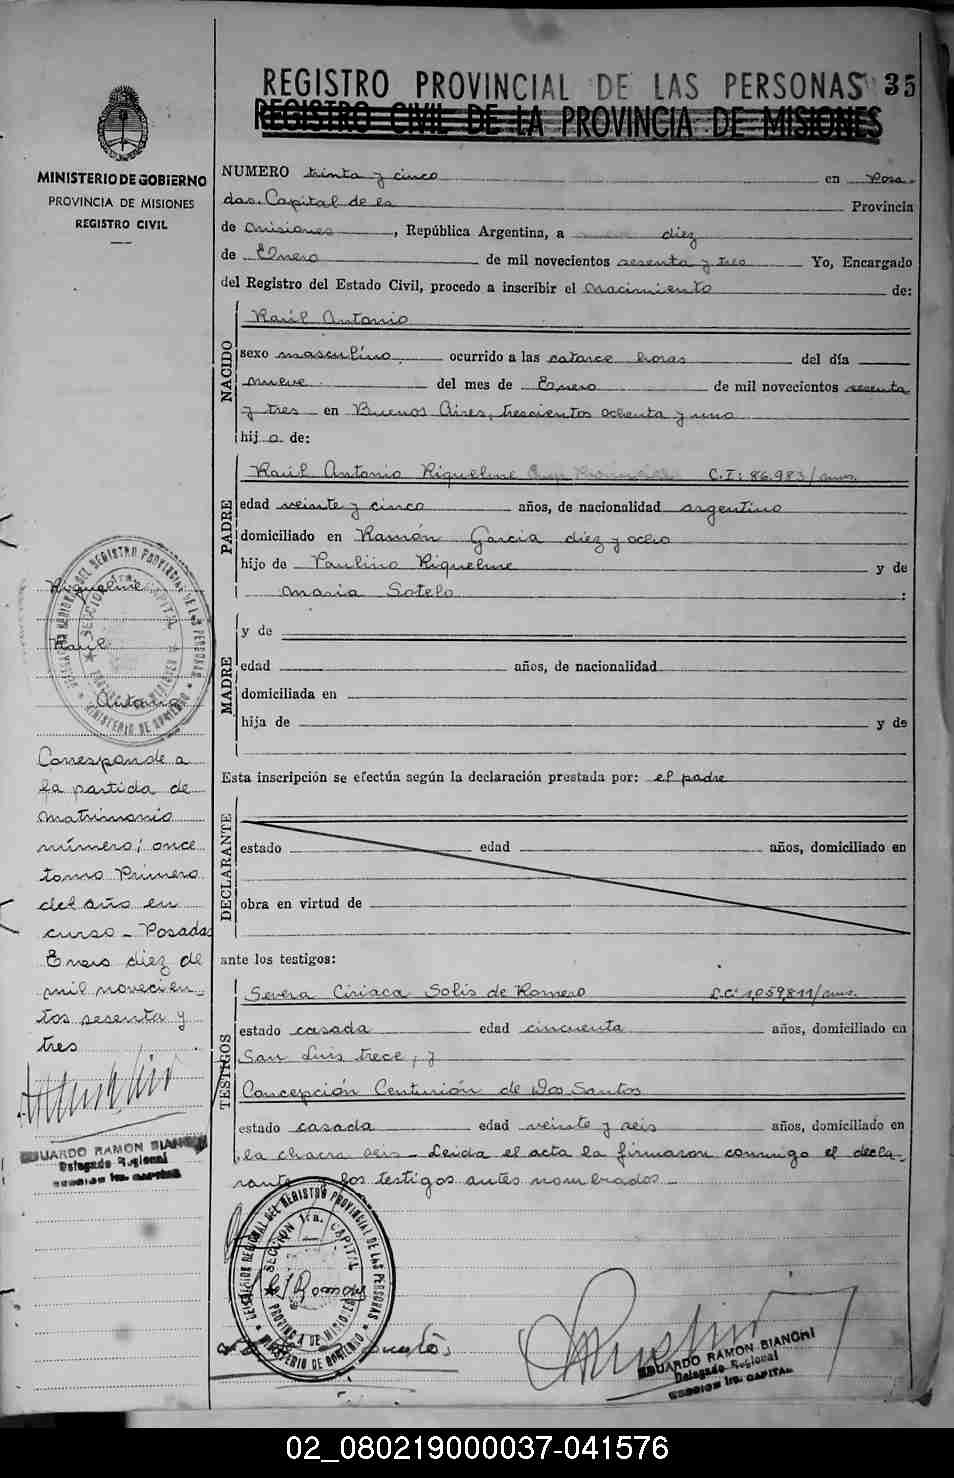 REGISTRO PROVINCIAL DE LAS PERSONAS 35
REGISTRO CIVIL DE LA PROVINCIA DE MISIONES
MINISTERIO DE GOBIERNO
PROVINCIA DE MISIONES
REGISTRO CIVIL
NUMERO treinta y cinco en Posa-
das. Capital de la Provincia
de Misiones, República Argentina, a diez
de Enero de mil novecientos sesenta y tres Yo, Encargado
del Registro del Estado Civil, procedo a inscribir el nacimiento de:
NACIDO
Raúl Antonio
sexo masculino ocurrido a las catorce horas del día
nueve del mes de Enero de mil novecientos sesenta
y tres en Buenos Aires, trescientos ochenta y uno
hijo de:
PADRE
Raúl Antonio Riquelme C.I: 86.983/mns.
edad veinte y cinco años, de nacionalidad argentino
domiciliado en Ramón García diez y ocho
hijo de Paulino Riquelme y de
María Sotelo :
MADRE
y de
edad años, de nacionalidad
domiciliada en
hija de y de
Esta inscripción se efectúa según la declaración prestada por: el padre
DECLARANTE
estado edad años, domiciliado en
obra en virtud de
ante los testigos:
TESTIGOS
Severa Ciriaca Solis de Romero L.C: 1,059,811/mns.
estado casada edad cincuenta años, domiciliado en
San Luis trece, y
Concepción Centurión de Dos Santos
estado casada edad veinte y seis años, domiciliado en
la chacra seis - Leida el acta la firmaron conmigo el decla-
rante y los testigos antes nombrados -
Riquelme
Raúl
Antonio
Corresponde a
la partida de
matrimonio
número; once
tomo Primero
del año en
curso - Posadas
Enero diez de
mil novecien-
tos sesenta y
tres
EDUARDO RAMON BIANCHI
Delegado Regional
SECCION 1ra. CAPITAL
DELEGACION REGIONAL DEL REGISTRO PROVINCIAL DE LAS PERSONAS
SECCION 1ra. CAPITAL
PROVINCIA DE MISIONES
MINISTERIO DE GOBIERNO
DELEGACION REGIONAL DEL REGISTRO PROVINCIAL DE LAS PERSONAS
SECCION 1ra. CAPITAL
PROVINCIA DE MISIONES
MINISTERIO DE GOBIERNO
EDUARDO RAMON BIANCHI
Delegado Regional
SECCION 1ra. CAPITAL
02_080219000037-041576